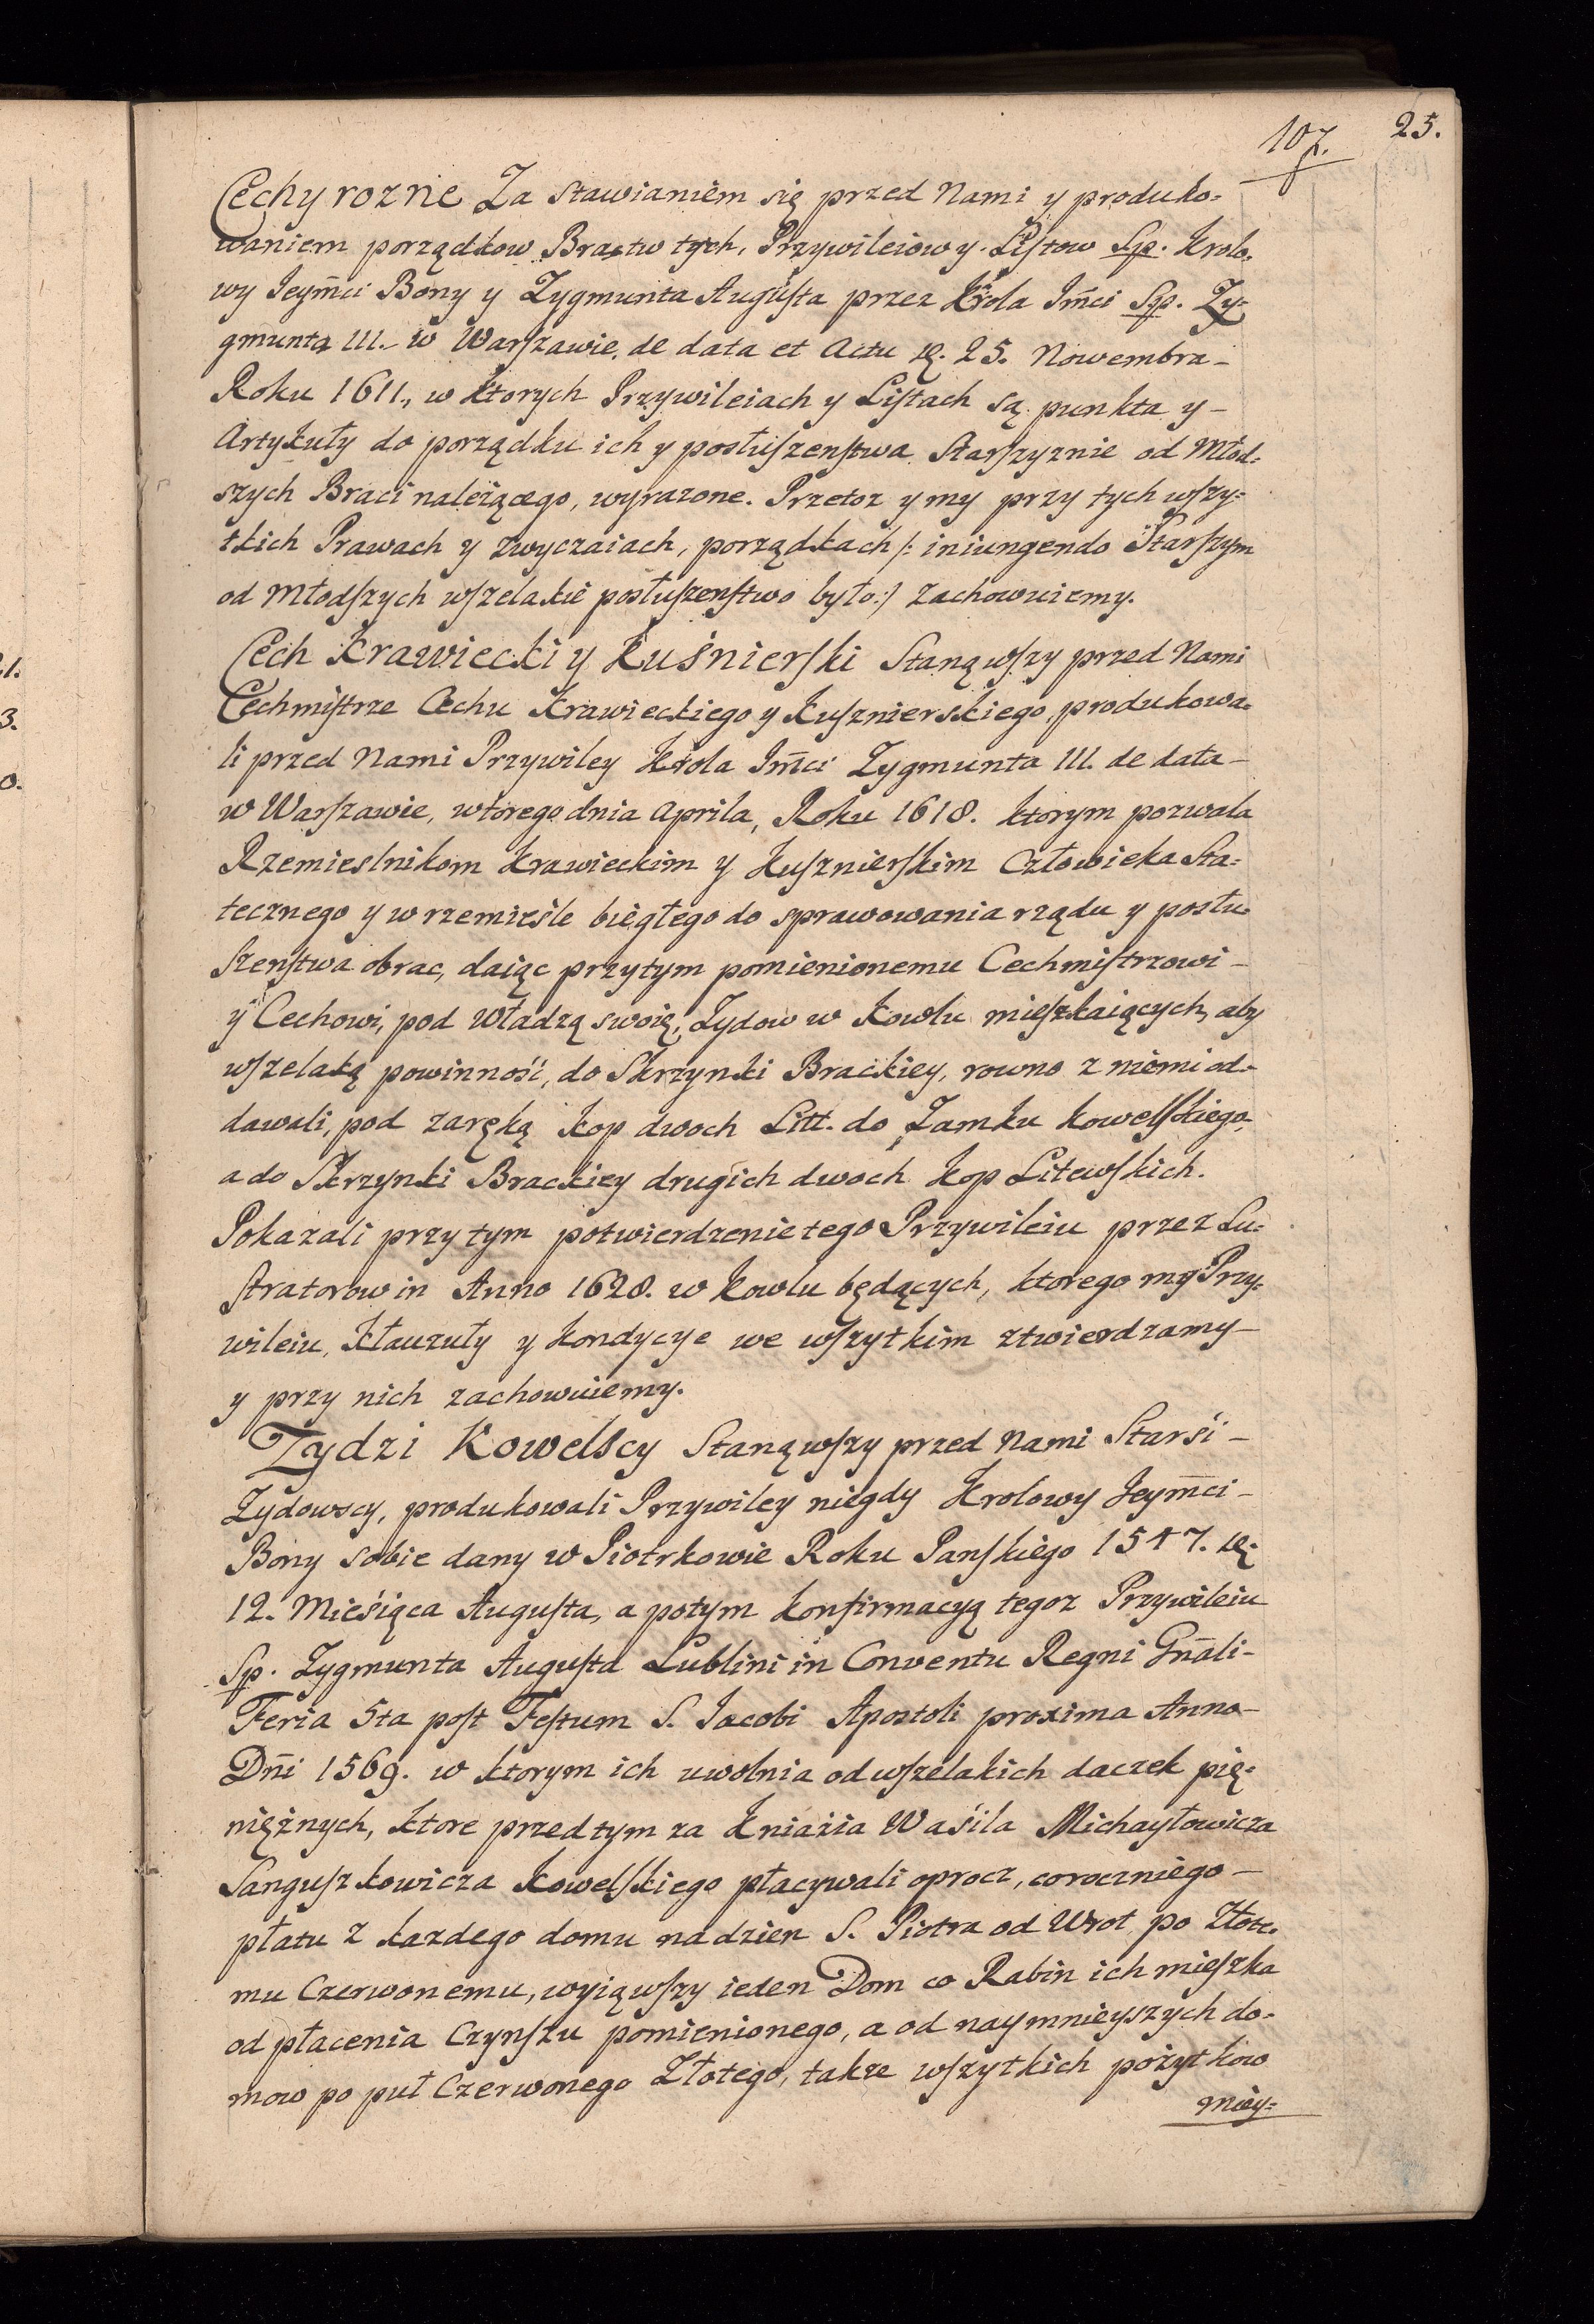 107. 25.
Cechy rozne Za stawianiem się przed Nami y produko=
waniem porządkow Bractw tych, Przywileiow y Listow Sp. Krolo=
wy Jeym̄ci Bony y Zygmunta Augusta przez Krola Jm̄ci Sp. Zy=
gmunta III. w Warszawie, de data et Actu 25. Nowembra
Roku 1611., w ktorych Przywileiach y Listach są punkta y
Artykuły do porządku ich y posłuszenstwa Starszyznie od Młod=
szych Braci należącego, wyrazone. Przetoz y my przy tych wszy=
tkich Prawach y zwyczaiach, porządkach /: iniungendo Starszym
od Młodszych wszelakie posłuszenstwo było:/ zachowuiemy.
Cech Krawiecki y Kuśnierski Stanąwszy przed Nami
Cechmistrze Cechu Krawieckiego y Kusznierskiego, produkowa=
li przed Nami Przywiley Krola Jm̄ci Zygmunta III. de data
w Warszawie, wtorego dnia Aprila, Roku 1618. ktorym pozwala
Rzemieslnikom Krawieckim y Kusznierskim Człowieka Sta=
tecznego y w rzemieśle biegłego do sprawowania rządu y posłu=
szenstwa obrac, daiąc przytym pomienionemu Cechmistrzowi
y Cechowi, pod władzą swoię, Zydow w Kowlu mieszkaiących, aby
wszelaką powinność, do Skrzynki Brackiey, rowno z niemi od=
dawali, pod zaręką kop dwoch Litt. do Zamku Kowelskiego,
a do Skrzynki Brackiey drugich dwoch kop Litewskich.
Pokazali przytym potwierdzenie tego Przywileiu przez Lu=
stratorow in Anno 1628. w Kowlu będących, ktorego my Przy=
wileiu, Klauzuły y kondycye we wszytkim ztwierdzamy
y przy nich zachowuiemy.
Zydzi Kowelscy Stanąwszy przed Nami Starśi
Zydowscy, produkowali Przywiley niegdy Krolowy Jeym̄ci
Bony sobie dany w Piotrkowie Roku Panskiego 1547.
12. Mieśiąca Augusta, a potym konfirmacyą tegoz Przywileiu
Sp. Zygmunta Augusta Lublini in Conventu Regni Gn̄ali
Feria 5ta post Festum S. Jacobi Apostoli proxima Anno
Dn̄i 1569. w ktorym ich uwolnia od wszelakich daczek pię=
niężnych, ktore przedtym za Kniaźia Waśila Michayłowicza
Sanguszkowicza Kowelskiego płacywali oprocz, coroczniego
płatu z kazdego domu na dzien S. Piotra od Wrot po Złote=
mu Czerwonemu, wyiąwszy ieden Dom co Rabin ich mieszka
od płacenia Czynszu pomienionego, a od naymnieyszych do=
mow po puł Czerwonego Złotego, takze wszytkich pożytkow
miey=
1.
3.
0.